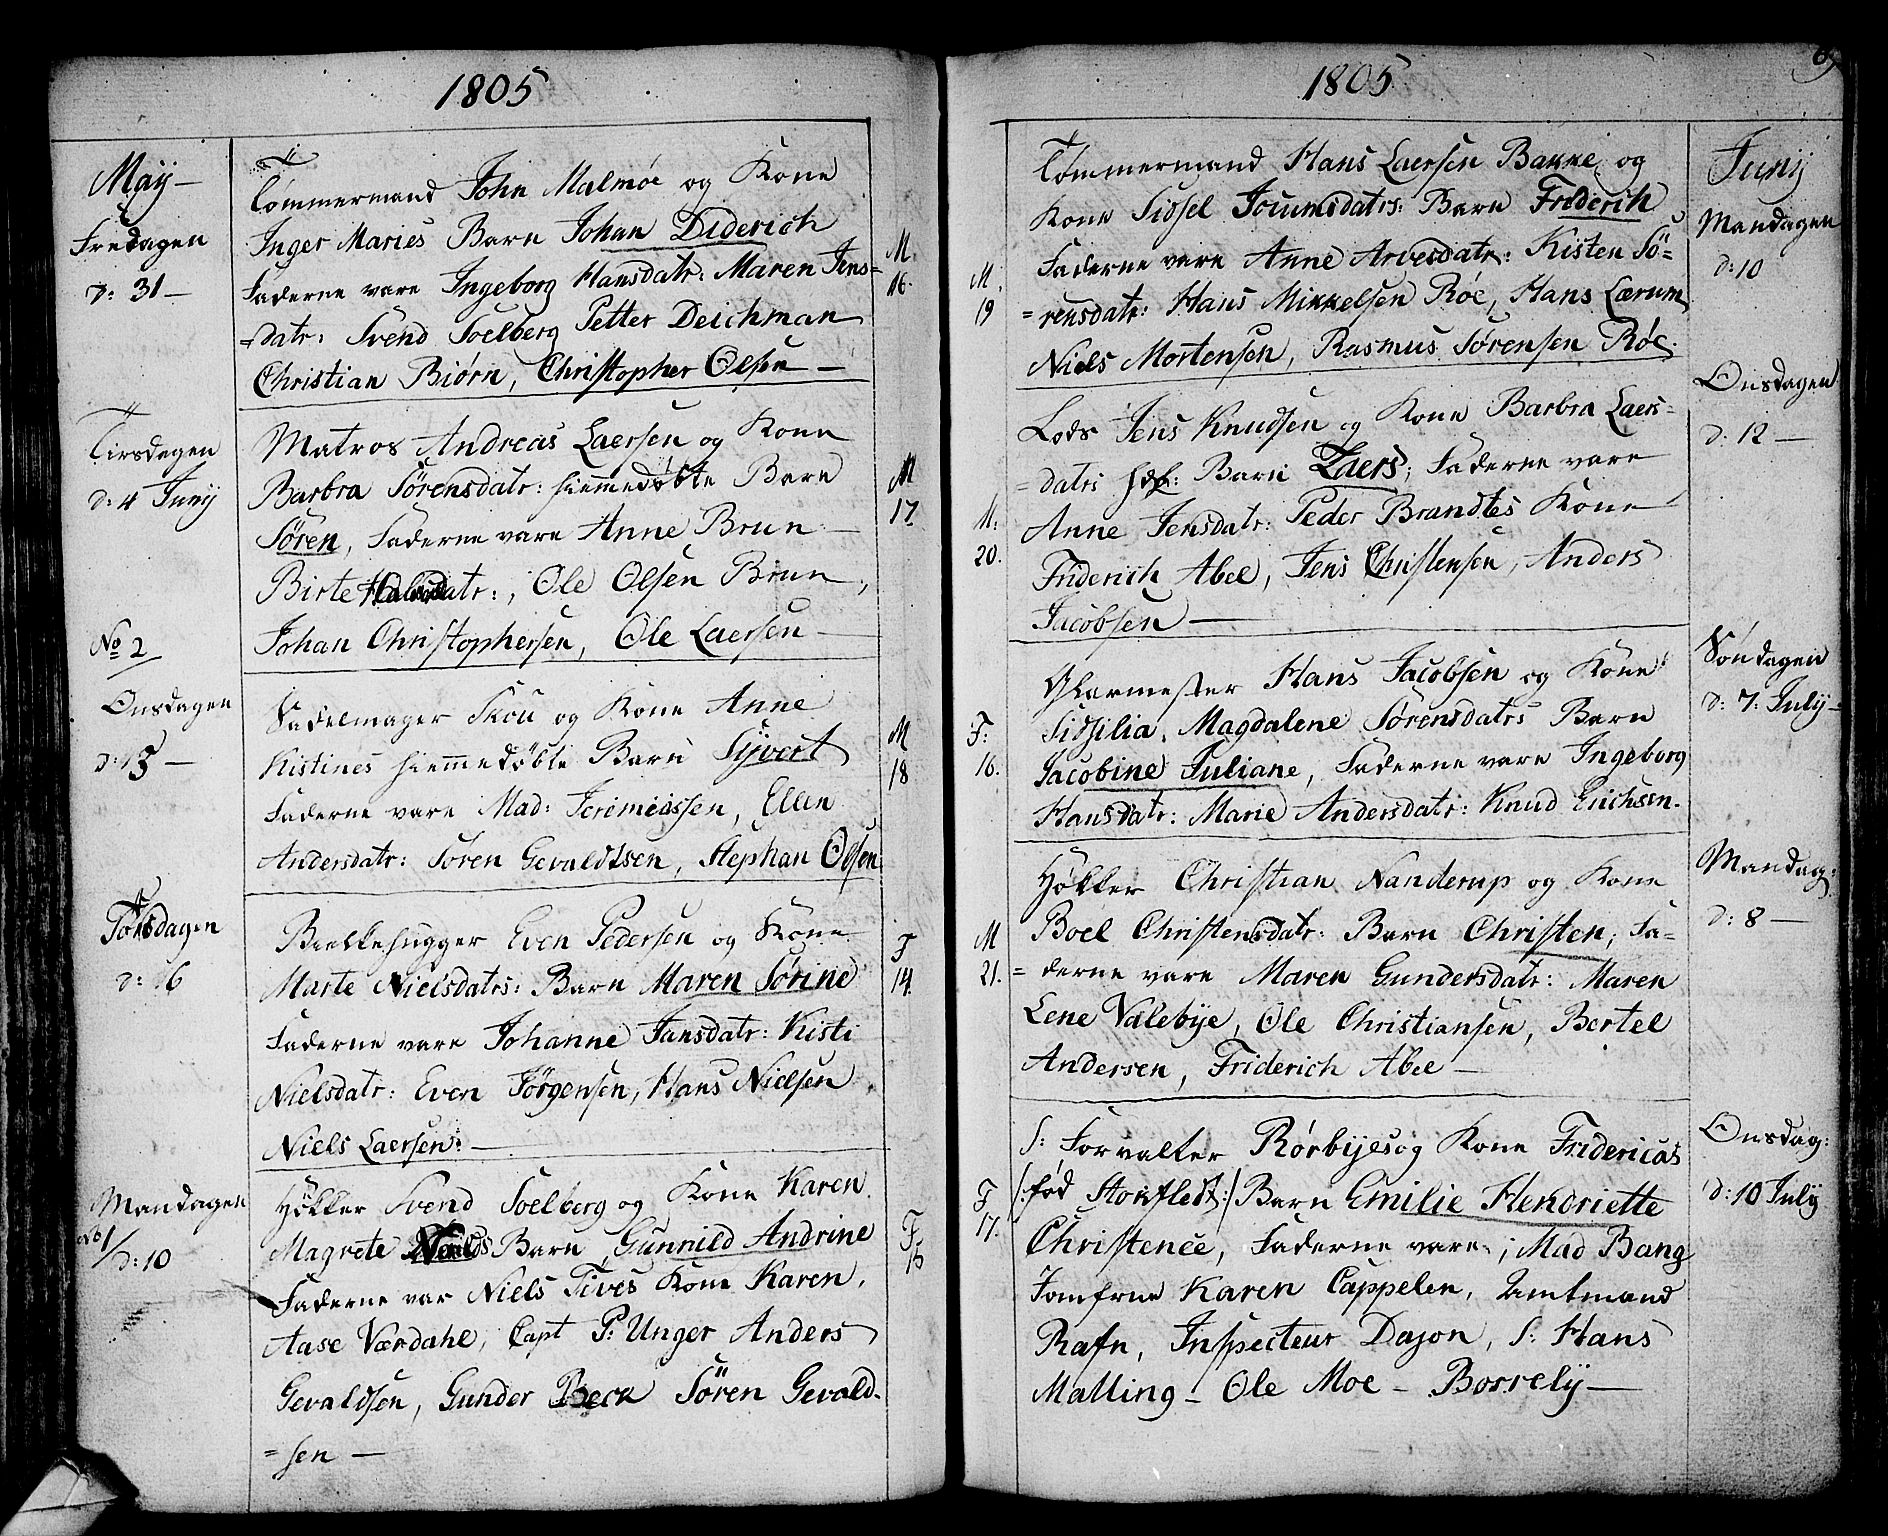 1805
May
Fredagen
d: 31 —
Tømmermand John Malmøe og Kone
Inger Maries Barn Johan Diderich
Faderne vare Ingeborg Hansdatr: Maren Jens=
=datr: Svend Soelberg Petter Deichman
Christian Biørn, Christopher Olsen —
M.
16.
Tirsdagen
d: 4 Junij
Matros Andreas Laersen og Kone
Barbra Sörensdatr: hiemmedøbte Barn
Sören, Faderne vare Anne Brun —
Birte datr:, Ole Olsen Brun,
Johan Christophersen, Ole Laersen —
M
17
No 2
Onsdagen
d: 5 —
Sadelmager Skou og Kone Anne
Kistines hiemmedøbte Barn Syvert
Faderne vare Mad: Jeremiassen, Ellen
Andersdatr: Sören Gevaldtsen, Stephan Olsen
M
18
Torsdagen
d: 6
Bielkehugger Even Pedersen og Kone
Marte Nielsdatrs: Barn Maren Sörine
Faderne vare Johanne Jansdatr: Kisti
Nielsdatr: Even Jörgensen, Hans Nielsen
Niels Laersen: —
F
14
Mandagen
No 1
d: 10
Høkker Svend Soelberg og Kone Karen
Magrete Barn Gunnild Andrine
Faderne var Niels Tives Kone Karen,
Aase Værdahl, Capt P: Unger Anders
Gevaldsen, Gunder Beck Sören Gevald-
=sen —
F
15
1805
Tømmermand Hans Laersen Bakke og
Kone Sidsel Joumsdatrs: Barn Friderich
Faderne vare Anne Arvesdatr: Kisten Sö=
=rensdatr: Hans Mikkelsen Röe, Hans Lærum
Niels Mortensen, Rasmus Sörensen Röe.
M.
19
Junij
Mandagen
d: 10
Lods Jens Knudsen og Kone Barbra Laers-
=datrs hdb: Barn Laers, Faderne vare
Anne Jensdatr: Peder Brandtes Kone
Friderich Abel, Jens Christensen, Anders
Jacobsen —
M:
20.
Onsdagen
d: 12 —
Glarmester Hans Jacobsen og Kone
Sidsilia Magdalene Sörensdatrs Barn
Jacobine Juliane, Faderne vare Ingeborg
Hansdatr: Marie Andersdatr: Knud Erichsen.
F:
16.
Søndagen
d: 7: July —
Høkker Christian Nanderup og Kone
Boel Christensdatr: Barn Christen, Fa=
=derne vare Maren Gundersdatr: Maren
Lene Valebye, Ole Christiansen, Bertel
Andersen, Friderich Abel —
M
21.
Mandag:
d: 8 —
S: Forvalter Rörbyes og Kone Fridericas
/:fød Stovfledt:/ Barn Emilie Hendriette
Christence, Faderne vare; Mad Bang
Jomfrue Karen Cappelen, Amtmand
Rafn, Inspecteur Dajon, S: Hans
Malling — Ole Moe — Borrely —
F
17.
Onsdag:
d: 10 July